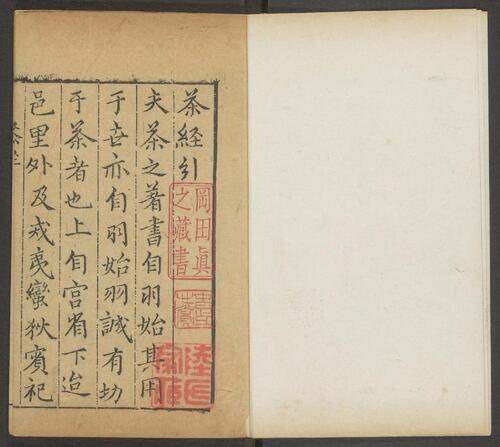 茶經引
夫茶之著書自羽始其用
于世亦自羽始羽誠有功
于茶者也上自宮省下迨
邑里外及戎夷蠻狄賓祀
岡田眞
之藏書